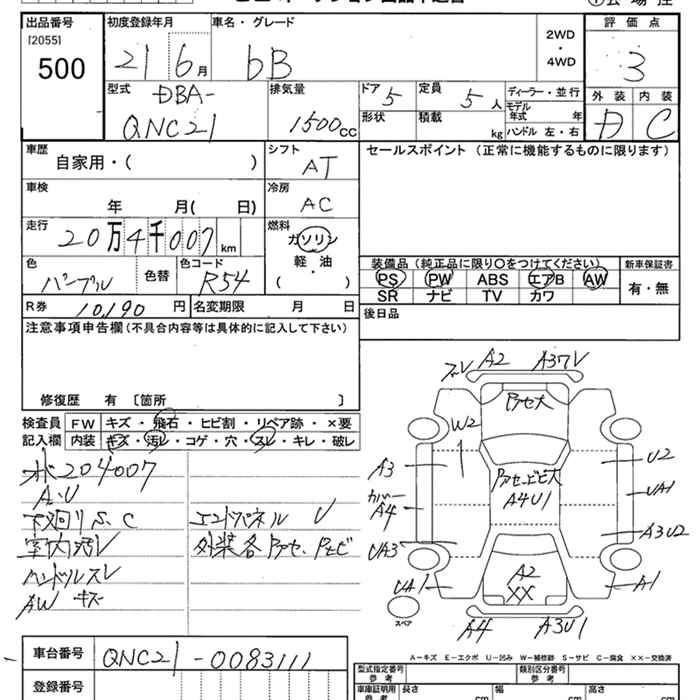 出品番号
[2055]
500
初度登録年月
21 6月
車名・グレード
bB
2WD
・
4WD
評価点
3
型式
DBA-
QNC21
排気量
1500cc
ドア 5
定員 5人
形状
積載 kg
ディーラー・並行
モデル年式 年
ハンドル 左・右
外装 内装
D C
車歴
自家用・( )
シフト
AT
セールスポイント (正常に機能するものに限ります)
車検
年 月( 日)
冷房
AC
走行
20万4千007km
燃料
ガソリン
軽・油
( )
色
パープル
色替
色コード
R54
装備品 (純正品に限り○をつけてください)
新車保証書
PS PW ABS エアB AW
SR ナビ TV カワ
有・無
R券 10,190 円
名変期限 月 日
後日品
注意事項申告欄(不具合内容等は具体的に記入して下さい)
修復歴 有 〔箇所 〕
検査員
記入欄
FW キズ・飛石・ヒビ割・リペア跡・×要
内装 キズ・汚レ・コゲ・穴・スレ・キレ・破レ
204007
A・U
下廻りS、C
室内汚レ
ハンドルスレ
AW キズ
エンドパネル U
A2
A37V
W2
A3
カバー
A4
UA3
UA1
A4U1
U2
UA1
A3U2
A1
A2
XX
A4
A3U1
スペア
A−キズ E−エクボ U−凹み W−補修跡 S−サビ C−腐食 ××−交換済
車台番号
QNC21-0083111
登録番号
型式指定番号
参考
類別区分番号
車庫証明用
参考
長さ cm
幅 cm
高さ cm